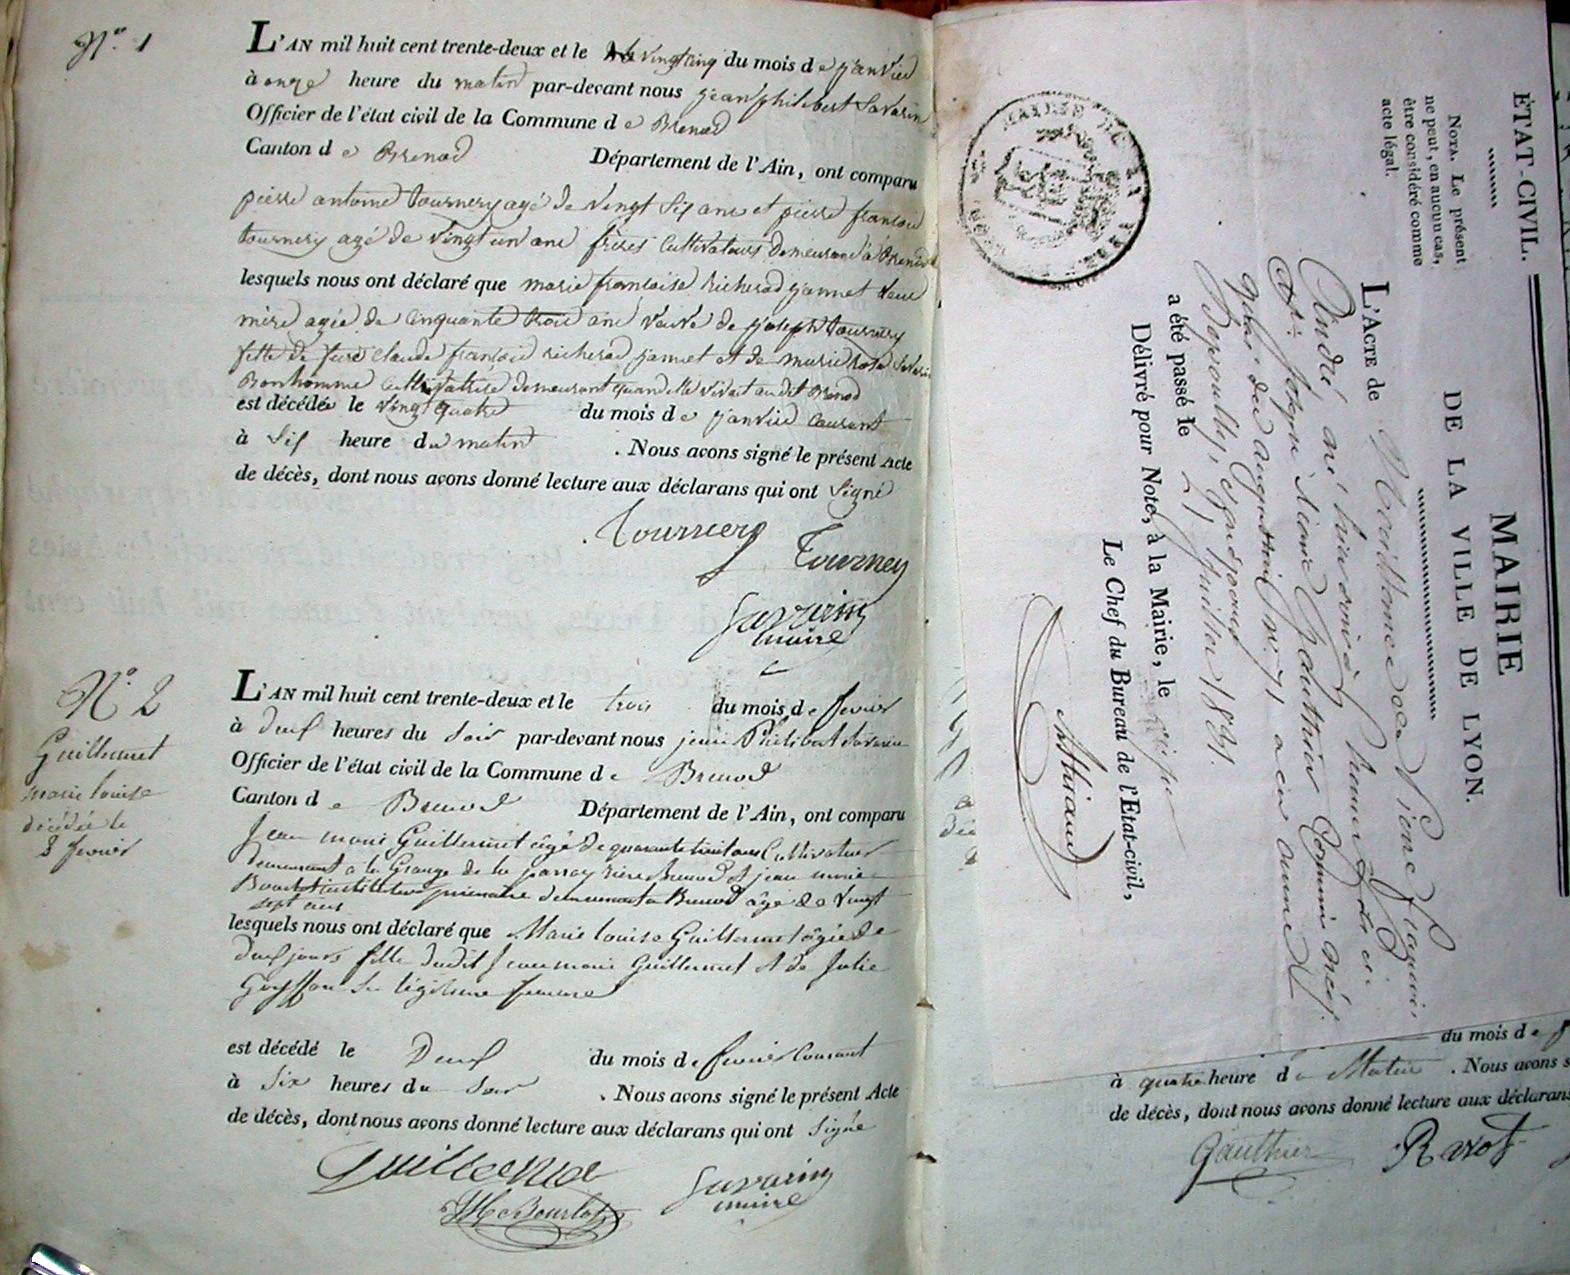 N.° 1
L'AN mil huit cent trente-deux et le vingt cinq du mois de janvier
à onze heure du matin par-devant nous jean philibert Savarin
Officier de l'état civil de la Commune de Brenod
Canton de Brenod Département de l'Ain, ont comparu
pierre antoine tournery agé de vingt six ans et pierre francois
tournery agé de vingt un ans frères Cultivateurs demeurand à Brenod
lesquels nous ont déclaré que marie francoise richerod jannet leur
mère agée de cinquante trois ans veuve de joseph tournery
fille de feu claude francois richerod jannet et de marie rose Savarin
Bonhomme Cultivatrice demeurant quand elle vivait audit Brenod
est décédée le vingt quatre du mois de janvier courant
à six heure du matin . Nous avons signé le présent Acte
de décès, dont nous avons donné lecture aux déclarans qui ont signé
Tournery Tourney
Savarin
maire
N.° 2
Guillermet
marie louise
décédée le
2 fevrier
L'AN mil huit cent trente-deux et le trois du mois de fevrier
à deux heures du soir par-devant nous jean Philibert Savarin
Officier de l'état civil de la Commune de Brenod
Canton de Brenod Département de l'Ain, ont comparu
Jean marie Guillermet âgé de quarante huit ans Cultivateur
demeurant à la Grange de rière Brenod et jean marie
instituteur primaire demeurant à Brenod âgé de vingt
sept ans
lesquels nous ont déclaré que Marie louise Guillermet âgée de
deux jours fille dudit Jean marie Guillermet et de Julie
Goyffon sa légitime femme
est décédé le Deux du mois de fevrier Courant
à Six heures du Soir . Nous avons signé le présent Acte
de décès, dont nous avons donné lecture aux déclarans qui ont signé
Guillermet Savarin
maire
ÉTAT-CIVIL.
NOTA. Le présent
ne peut, en aucun cas,
être considéré comme
acte légal.
MAIRIE
DE LA VILLE DE LYON.
L'ACTE de Naissance de Pierre
André, né hier
Joseph Gauthier
quai des augustins, n.° 71
a été passé le 21 Juillet 1831.
Délivré pour Note, à la Mairie, le
Le Chef du Bureau de l'État-civil,
MAIRIE DE LA
du mois de
à quatre heure du Matin . Nous avons s
de décès, dont nous avons donné lecture aux déclarans
Gauthier Ravot